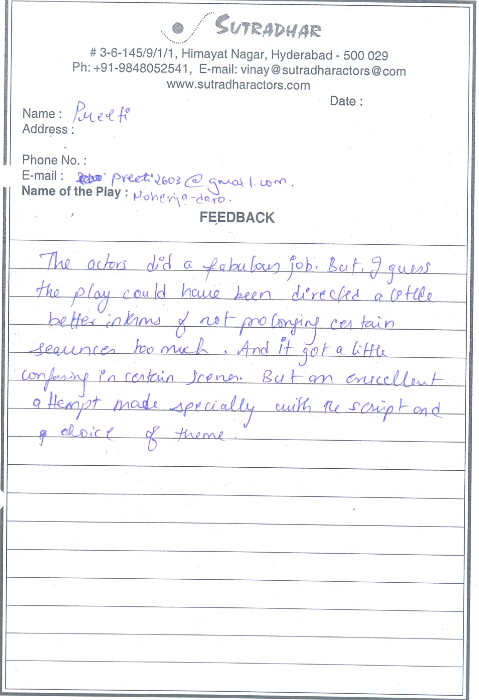 SUTRADHAR
# 3-6-145/9/1/1, Himayat Nagar, Hyderabad - 500 029
Ph: +91-9848052541, E-mail: vinay@sutradharactors@com
www.sutradharactors.com
Date :
Name : Preeti
Address :
Phone No. :
E-mail : preeti2603@gmail.com.
Name of the Play : Mohenja-daro.
FEEDBACK
The actors did a fabulous job. But, I guess
the play could have been directed a little
better interms of not prolonging certain
sequnces too much. And it got a little
confusing in certain scenes. But an excellent
attempt made specially with the script and
choice of theme.